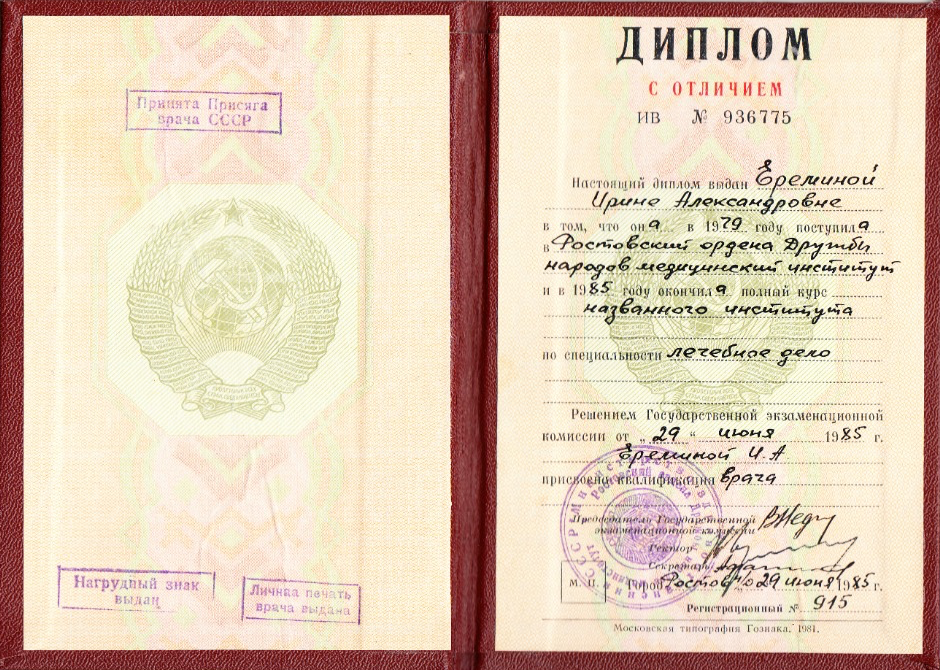 Принята Присяга
врача СССР
Нагрудный знак
выдан
Личная печать
врача выдана
ДИПЛОМ
С ОТЛИЧИЕМ
ИВ № 936775
Настоящий диплом выдан Ереминой
Ирине Александровне
в том, что она в 1979 году поступила
в Ростовский ордена Дружбы
народов медицинский институт
и в 1985 году окончила полный курс
названного института
по специальности лечебное дело
Решением Государственной экзаменационной
комиссии от „29“ июня 1985 г.
Ереминой И.А
присвоена квалификация врача
Председатель Государственной
экзаменационной комиссии
Ректор
Секретарь
М. П. Город Ростов 29 июня 1985 г.
Регистрационный № 915
Московская типография Гознака. 1981.